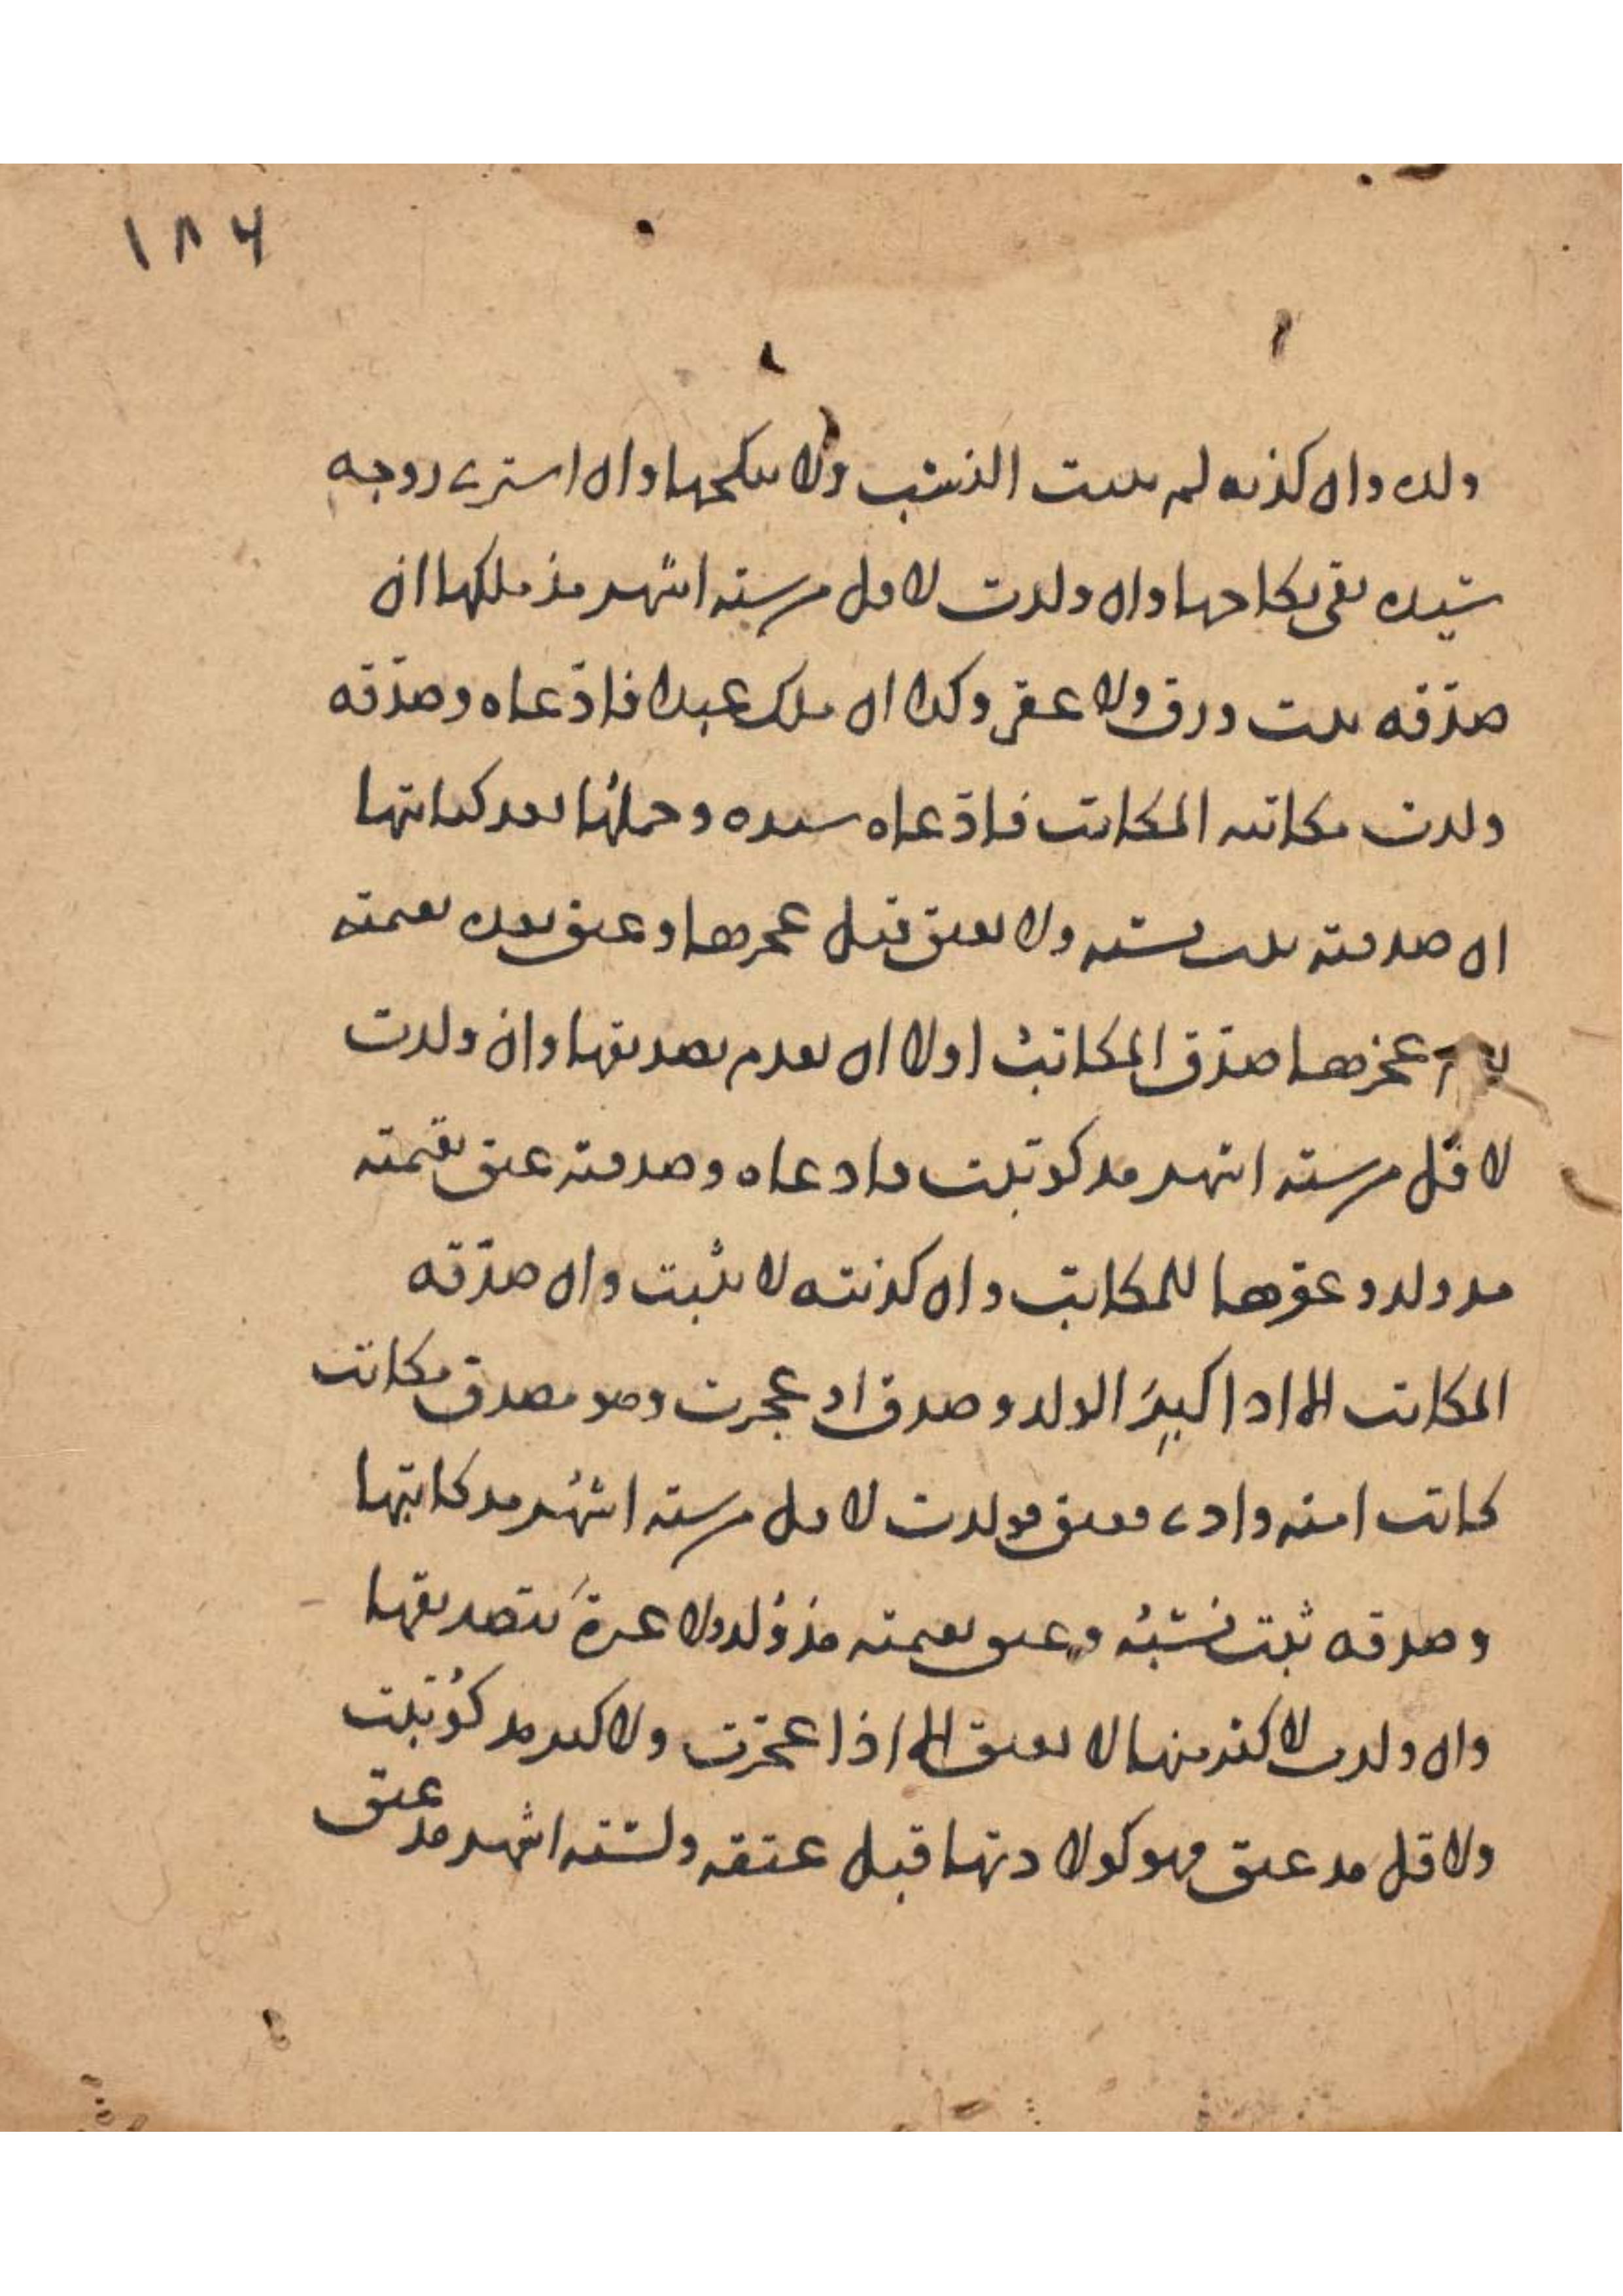 ١٨٤
ولده وان كذبه لم يثبت النسب ولا ينكحها وان اشترى زوجة
سيده بقي نكاحها وان ولدت لاقل من ستة اشهر مذ ملكها ان
صدقه يثبت ورق ولا عقر وكذا ان ملك عبدا فادعاه وصدقه
ولدت مكاتبه المكاتب فادعاه سيده وحملها بعد كتابتها
ان صدقته يثبت نسبه ولا يعتق قبل عجزها وعتق بعده بقيمته
عجزها صدق المكاتب اولا ان تقدم تصديقها وان ولدت
لاقل من ستة اشهر مذ كوتبت فادعاه وصدقته عتق بقيمته
مذ ولد وعقرها للمكاتب وان كذبته لا يثبت وان صدقه
المكاتب الا اذا كبر الولد وصدق او عجزت وهو مصدق مكاتب
كاتب امته وادى فعتق فولدت لاقل من ستة اشهر مذ كاتبها
وصدقه ثبت نسبه وعتق بقيمته مذ ولد ولا عبرة بتصديقها
وان ولدت لاكثر منها لا يعتق الا اذا عجزت ولاكثر مذ كوتبت
ولاقل مذ عتق فهو كولادتها قبل عتقه ولستة اشهر مذ عتق